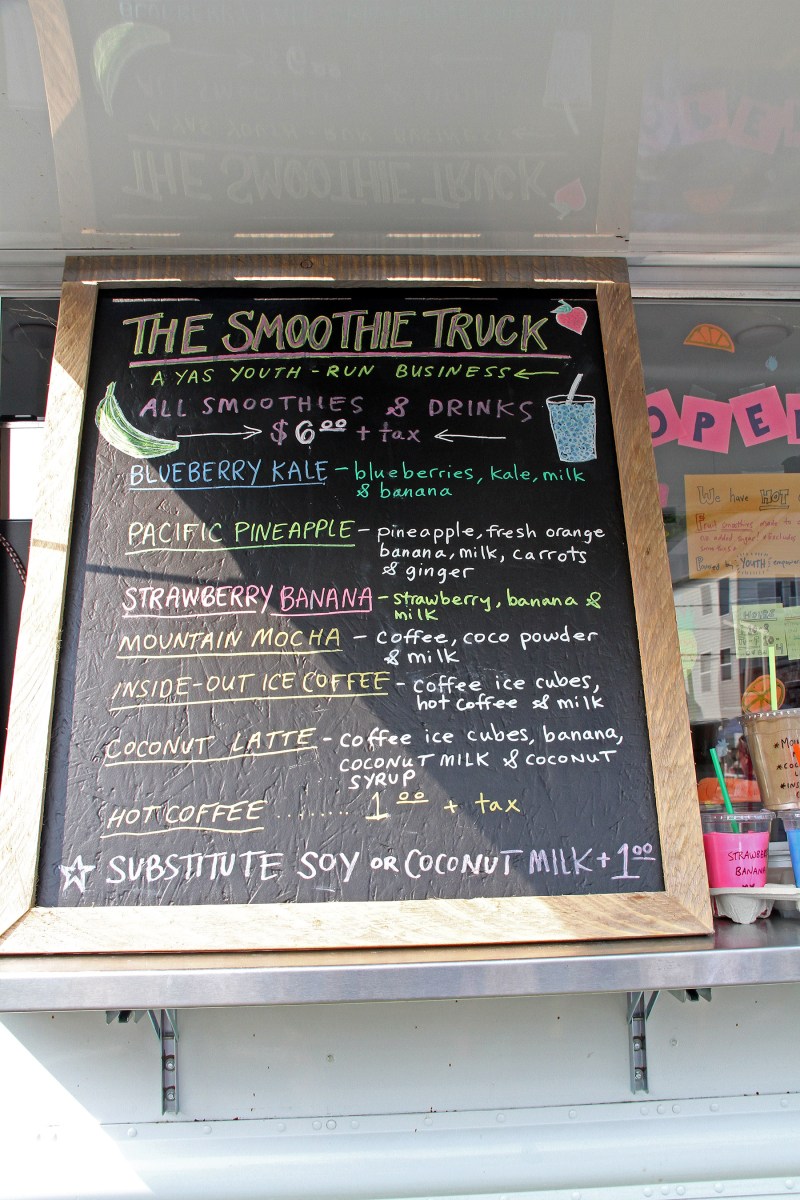 THE SMOOTHIE TRUCK
A YAS YOUTH-RUN BUSINESS ←
ALL SMOOTHIES & DRINKS
→ $6.00 + tax ←
BLUEBERRY KALE - blueberries, kale, milk
& banana
PACIFIC PINEAPPLE - pineapple, fresh orange
banana, milk, carrots
& ginger
STRAWBERRY BANANA - strawberry, banana &
milk
MOUNTAIN MOCHA - coffee, coco powder
& milk
INSIDE-OUT ICE COFFEE - coffee ice cubes,
hot coffee & milk
COCONUT LATTE - coffee ice cubes, banana,
COCONUT MILK & COCONUT
SYRUP
HOT COFFEE ........ 1.00 + tax
☆ SUBSTITUTE SOY OR COCONUT MILK + 1.00
OPEN
We have HOT
Fruit smoothies made to
no added sugar
YOUTH
HOURS
STRAWBER
BANANA